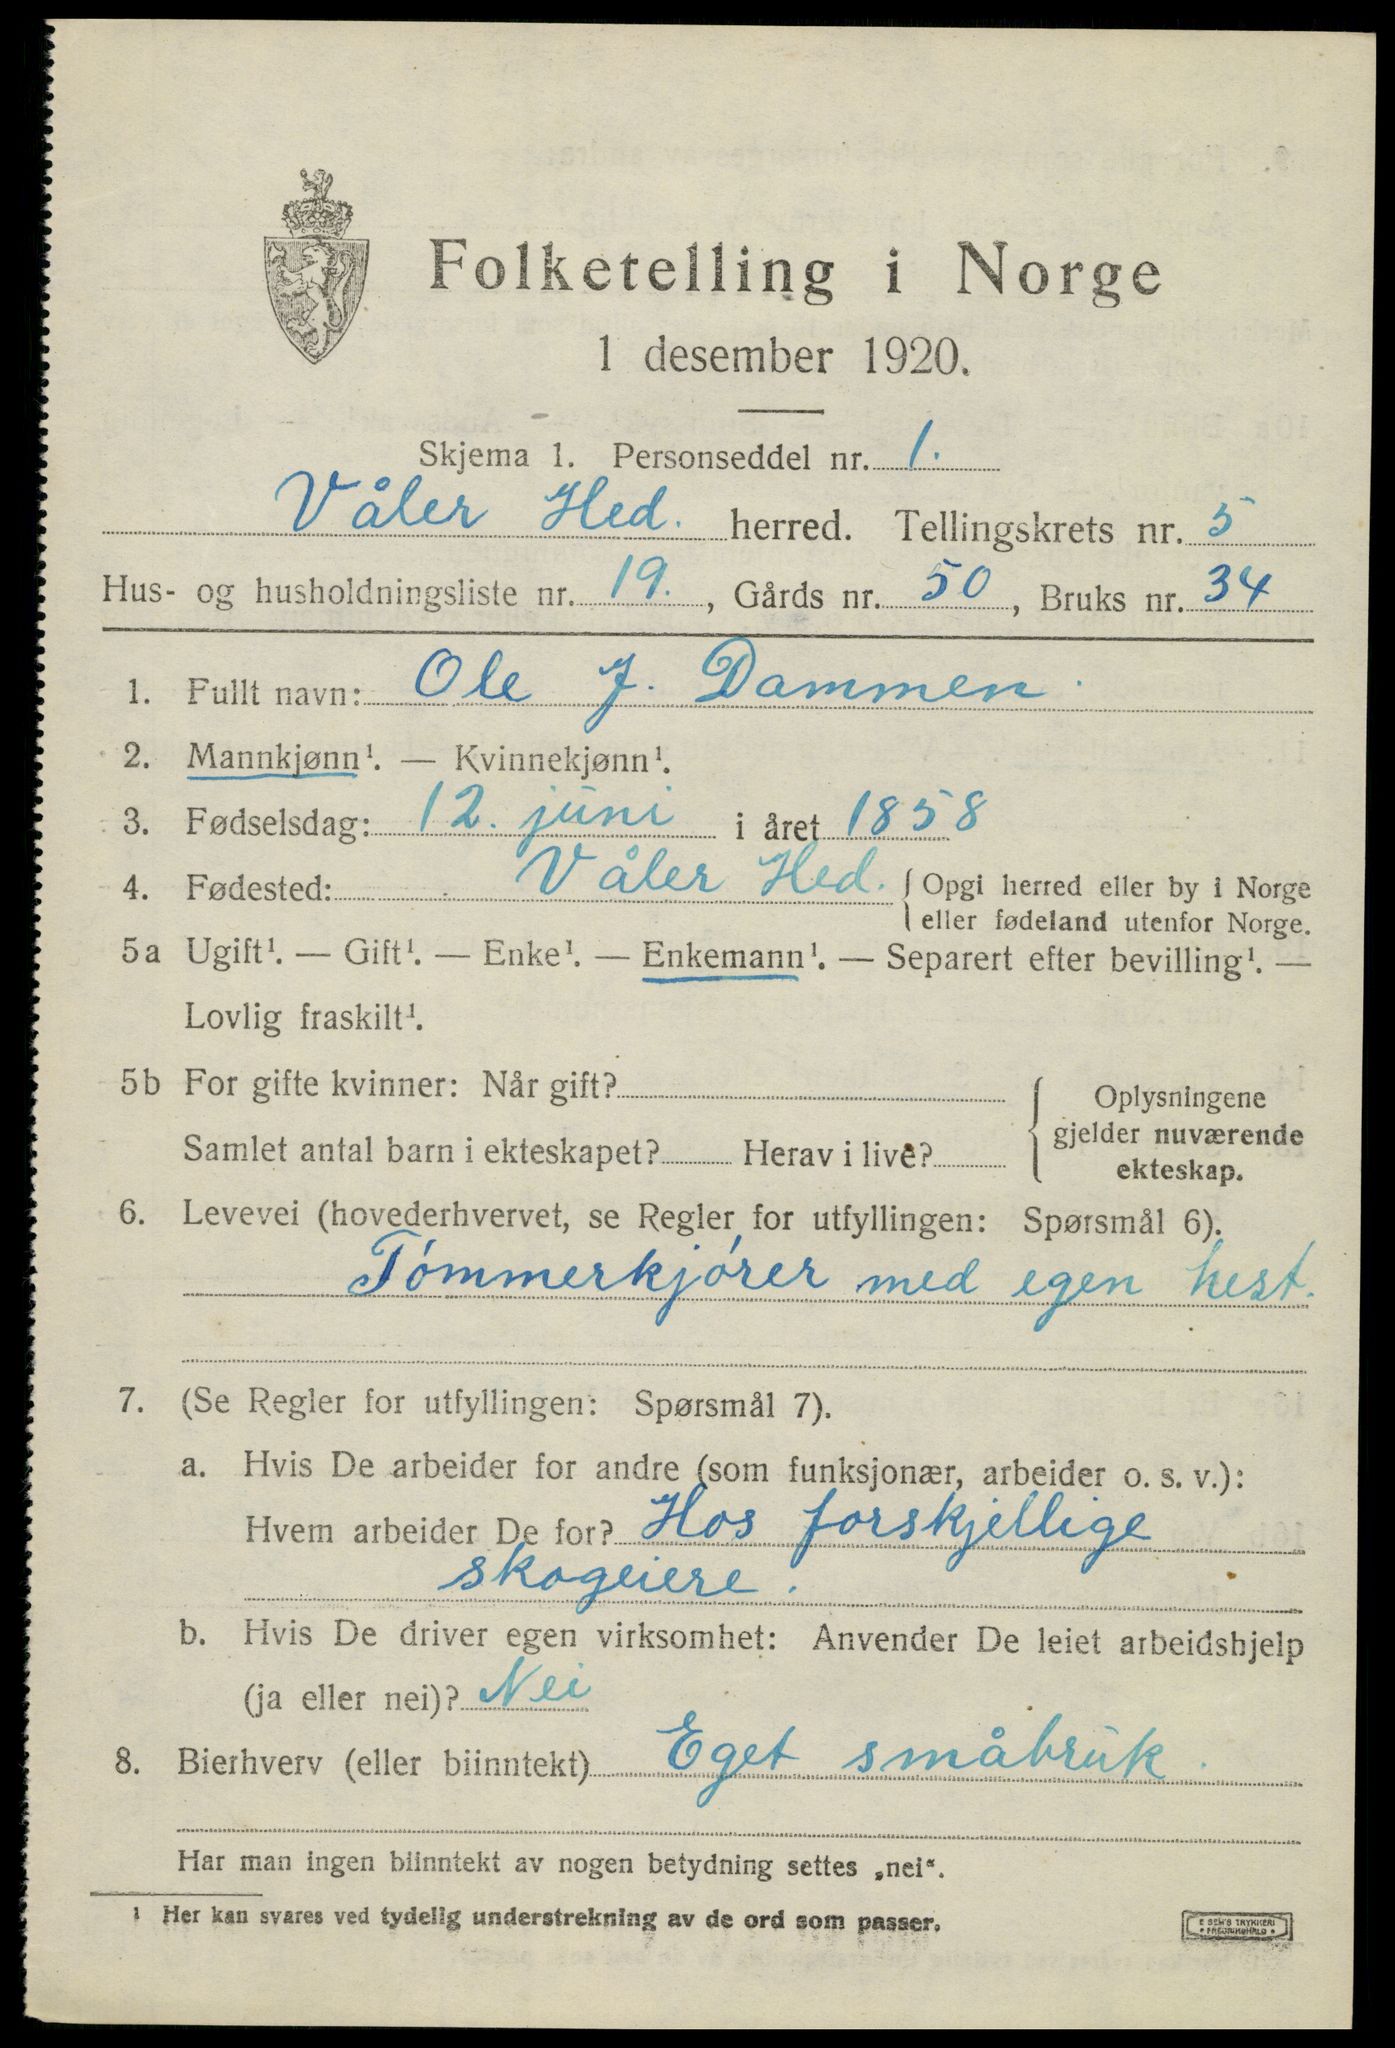 Folketelling i Norge
1 desember 1920.
Skjema 1. Personseddel nr. 1.
Våler Hed. herred. Tellingskrets nr. 5
Hus- og husholdningsliste nr. 19., Gårds nr. 50, Bruks nr. 34
1. Fullt navn: Ole J. Dammen.
2. Mannkjønn¹. — Kvinnekjønn¹.
3. Fødselsdag: 12. juni i året 1858
4. Fødested: Våler Hed. { Opgi herred eller by i Norge
eller fødeland utenfor Norge.
5a Ugift¹. — Gift¹. — Enke¹. — Enkemann¹. — Separert efter bevilling¹. —
Lovlig fraskilt¹.
5b For gifte kvinner: Når gift? { Oplysningene
gjelder nuværende
Samlet antal barn i ekteskapet? Herav i live?
ekteskap.
6. Levevei (hovederhvervet, se Regler for utfyllingen: Spørsmål 6).
Tómmerkjórer med egen hest.
7. (Se Regler for utfyllingen: Spørsmål 7).
a. Hvis De arbeider for andre (som funksjonær, arbeider o. s. v.):
Hvem arbeider De for? Hos forskjellige
skogeiere.
b. Hvis De driver egen virksomhet: Anvender De leiet arbeidshjelp
(ja eller nei)? Nei
8. Bierhverv (eller biinntekt) Eget småbruk.
Har man ingen biinntekt av nogen betydning settes „nei“.
¹ Her kan svares ved tydelig understrekning av de ord som passer.
E SEM'S TRYKKERI
• FREDRIKSHALD •